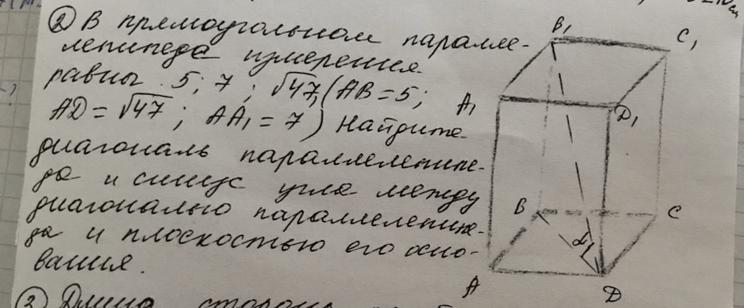 ② В прямоугольном паралле-
лепипеде измерения
равны 5; 7; √47, (AB = 5;
AD = √47; AA₁ = 7) Найдите
диагональ параллелепипе-
да и синус угла между
диагональю параллелепипе-
да и плоскостью его осно-
вания.
③ Длина сторона
B₁
C₁
A₁
D₁
B
C
A
D